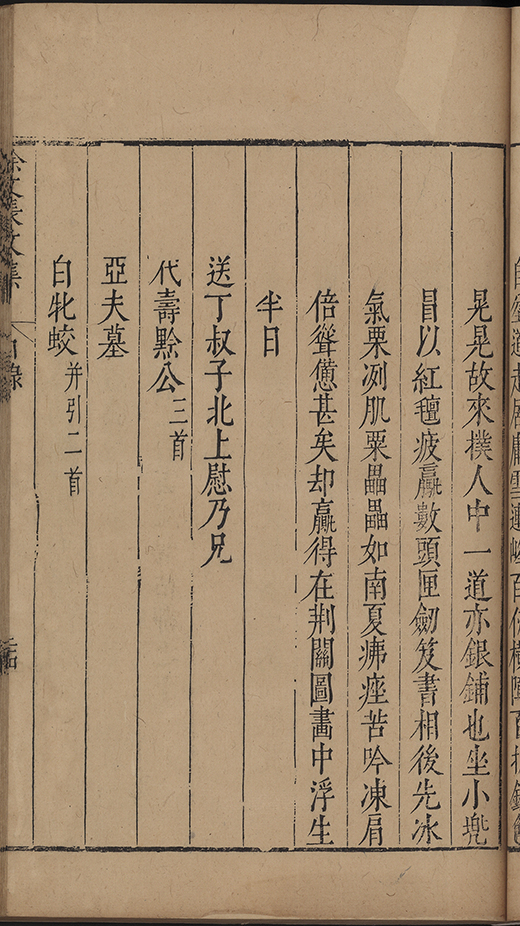 晃晃故來撲人中一道亦銀鋪也坐小兠
冐以紅氊疲驘數頭匣劒笈書相後先冰
氣栗冽肌粟畾畾如南夏疿痤苦吟凍肩
倍聳憊甚矣却贏得在荆關圖畫中浮生
半日
送丁叔子北上慰乃兄
代壽黔公三首
亞夫墓
白牝蛟并引二首
徐文長文集
目錄